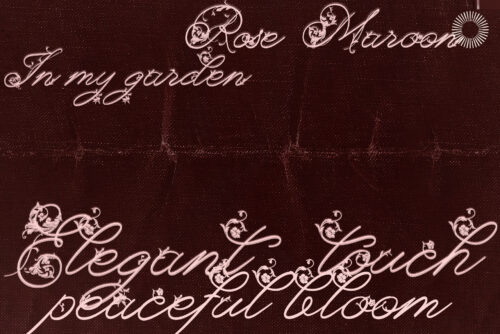 Rose Maroon
In my garden
Elegant touch
peaceful bloom